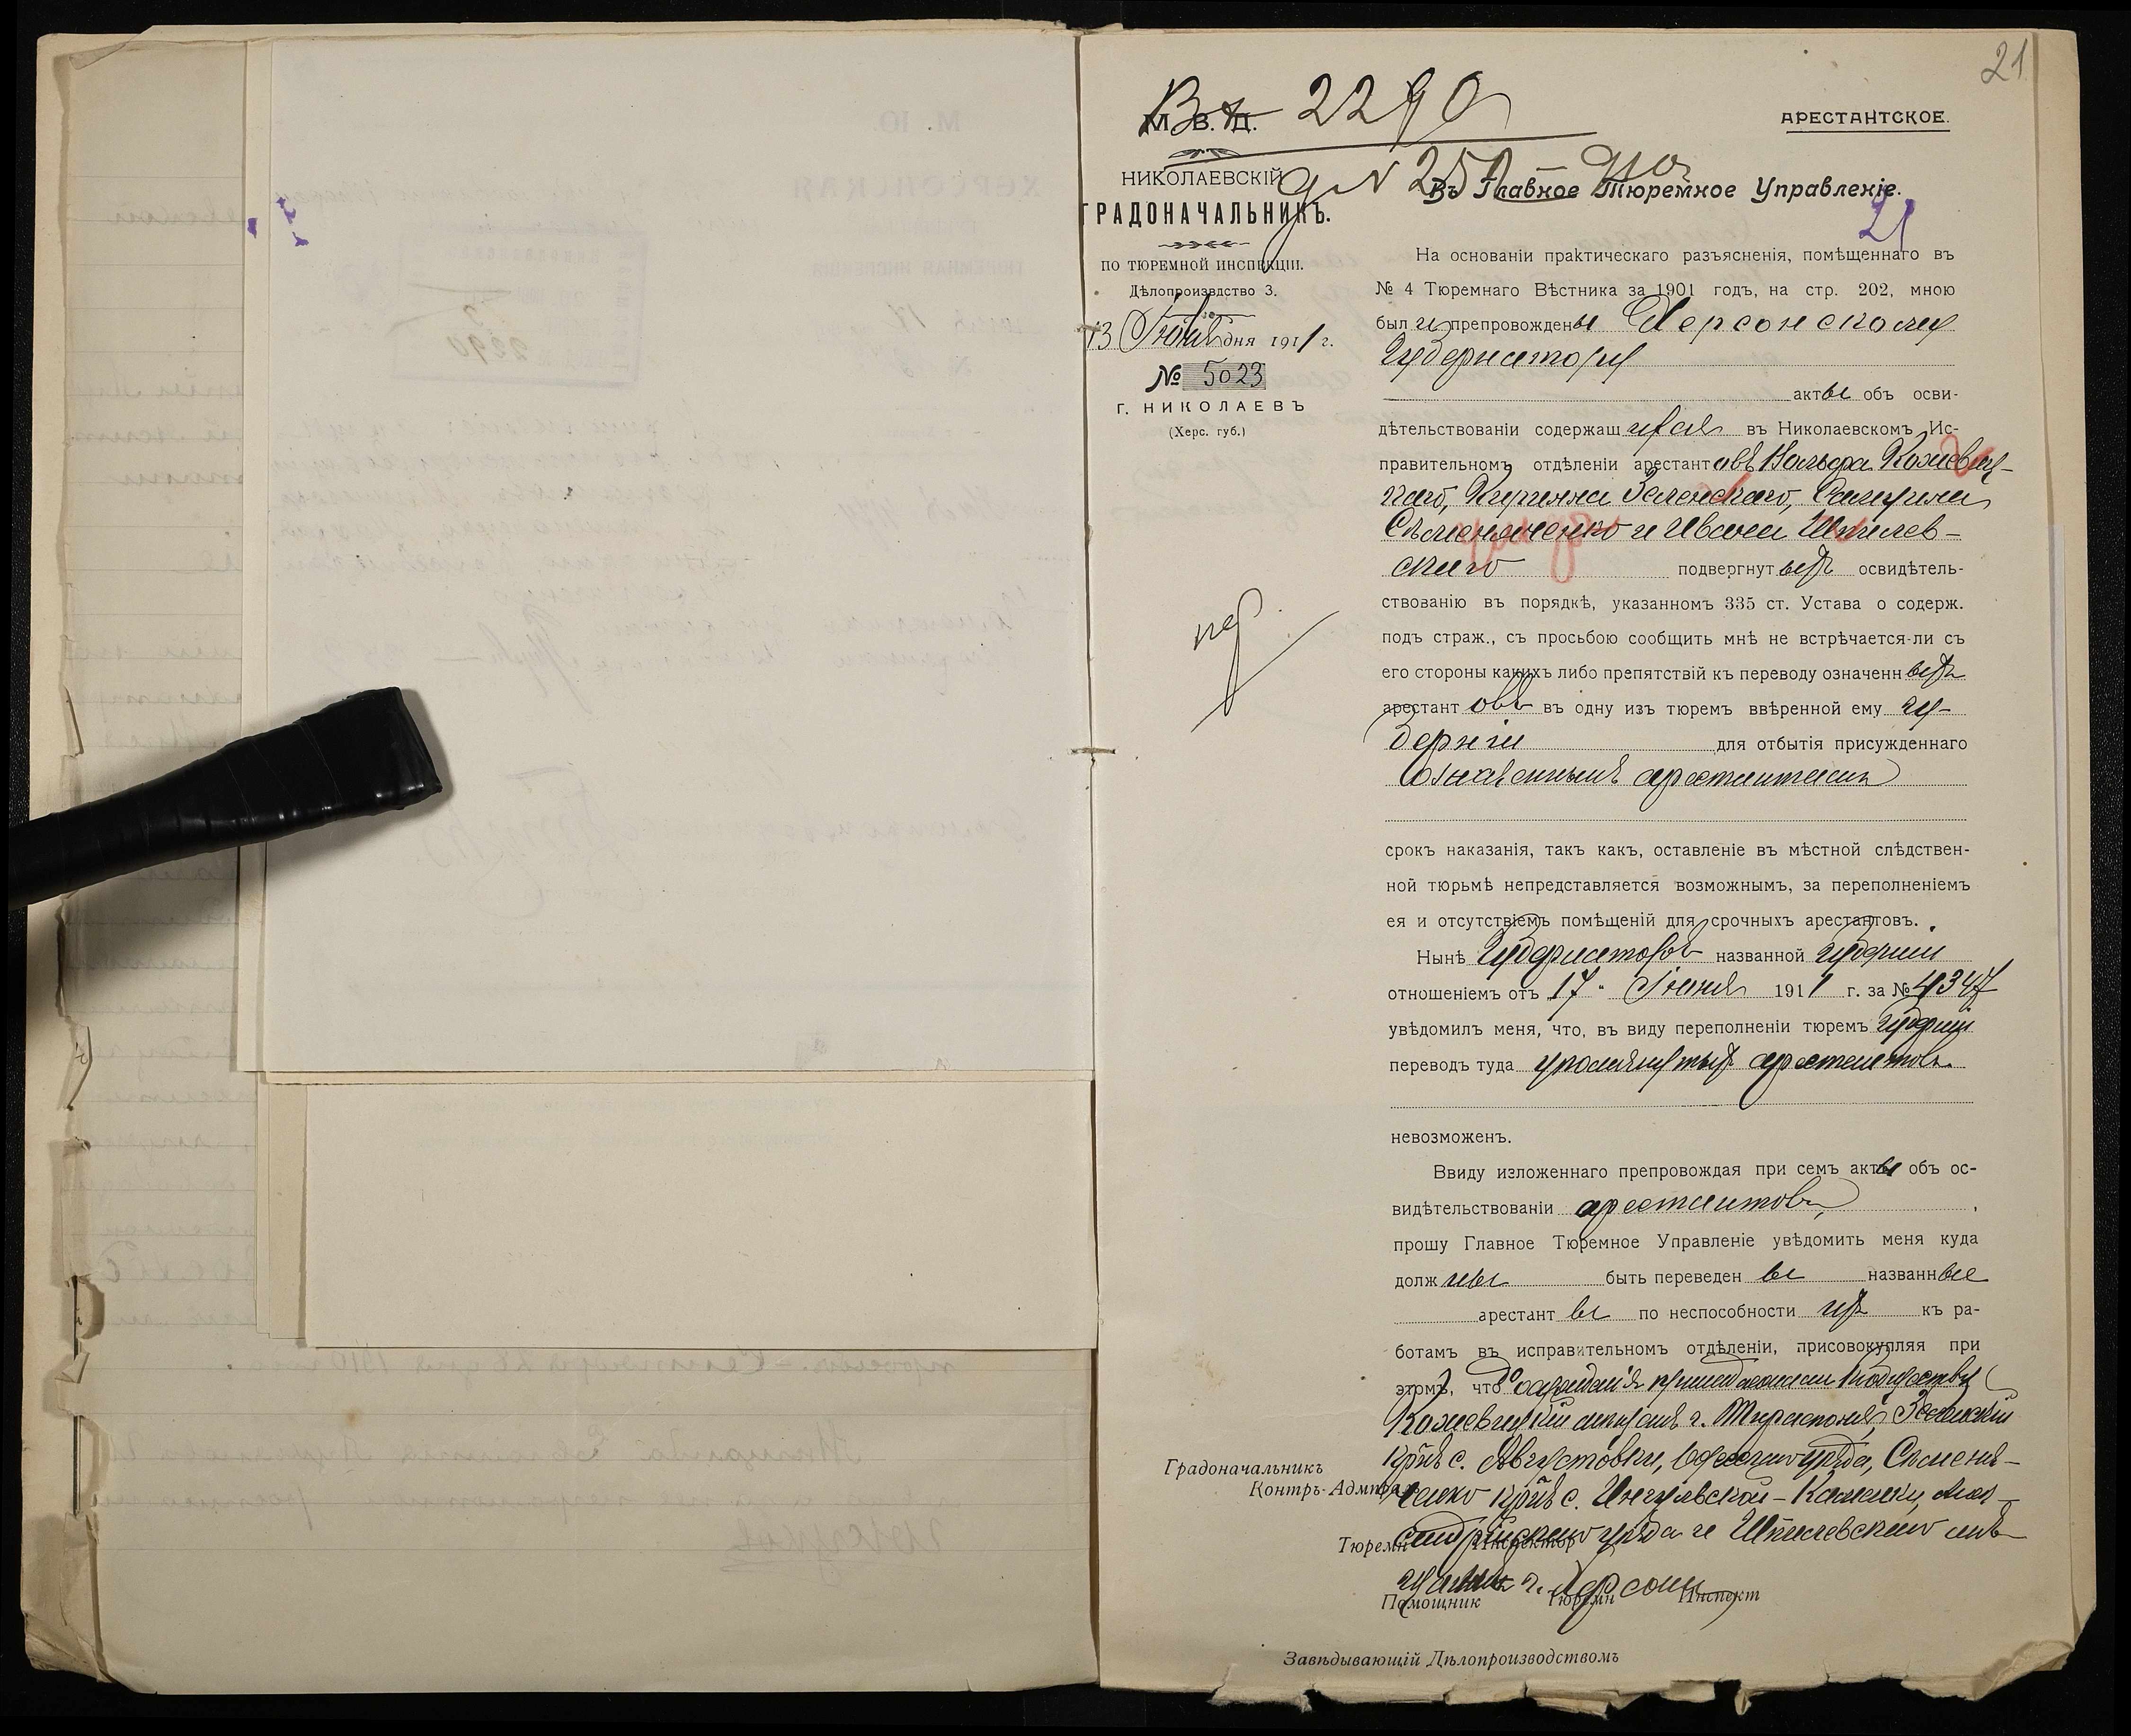 21
Вх 2290
М. В. Д.
АРЕСТАНТСКОЕ.
НИКОЛАЕВСКІЙ
ГРАДОНАЧАЛЬНИКЪ.
ПО ТЮРЕМНОЙ ИНСПЕКЦІИ.
Дѣлопроизвдство 3.
13 Іюля дня 1911 г.
№ 5023
Г. НИКОЛАЕВЪ
(Херс. губ.)
Въ Главное Тюремное Управленіе.
21
На основаніи практическаго разъясненія, помѣщеннаго въ
№ 4 Тюремнаго Вѣстника за 1901 годъ, на стр. 202, мною
были препровождены Херсонскому
Губернатору
акты объ осви-
дѣтельствованіи содержащихся въ Николаевскомъ Ис-
правительномъ отдѣленіи арестантовъ Вольфа Кожевниц-
каго, Кирилла Зеленскаго,
и Ивана Шпилев-
скаго подвергнутыхъ освидѣтель-
ствованію въ порядкѣ, указанномъ 335 ст. Устава о содерж.
подъ страж., съ просьбою сообщить мнѣ не встрѣчается-ли съ
его стороны какихъ либо препятствій къ переводу означенныхъ
арестантовъ въ одну изъ тюремъ ввѣренной ему гу-
берніи для отбытія присужденнаго
означеннымъ арестантамъ
срокъ наказанія, такъ какъ, оставленіе въ мѣстной слѣдствен-
ной тюрьмѣ непредставляется возможнымъ, за переполненіемъ
ея и отсутствіемъ помѣщеній для срочныхъ арестантовъ.
Нынѣ Губернаторъ названной губерніи
отношеніемъ отъ 17 Іюня 1911 г. за № 4347
увѣдомилъ меня, что, въ виду переполненіи тюремъ губерніи
переводъ туда упомянутыхъ арестантовъ
невозможенъ.
Ввиду изложеннаго препровождая при семъ акты объ ос-
видѣтельствованіи арестантовъ,
прошу Главное Тюремное Управленіе увѣдомить меня куда
должны быть переведены названные
арестанты по неспособности ихъ къ ра-
ботамъ въ исправительномъ отдѣленіи, присовокупляя при
этомъ, что до осужденія принадлежали къ обществу
г. Тирасполя, Зеленскій
кр-нъ с. Августовки, Одесскаго уѣзда, Сѣменя-
ченко кр-нъ с. Ингульской-Каменки, Алек-
сандрійскаго уѣзда и Шпилевскаго мѣ-
щанинъ г. Херсона
Градоначальникъ
Контръ-Адмиралъ
Тюремн Инспекторъ
Помощник Тюремн Инспект
Завѣдывающій Дѣлопроизводствомъ